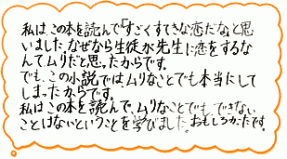 私は、この本を読んで「すごくすてきな恋だな」と思
いました。なぜなら生徒が先生に恋をするな
んてムリだと思ったからです。
でも、この小説ではムリなことでも本当にして
しまったからです。
私はこの本を読んで、ムリなことでも、できない
ことはないということを学びました。おもしろかったです。